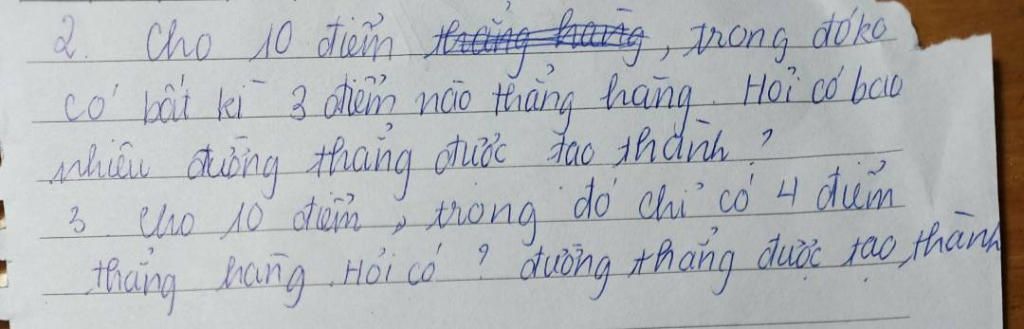 2. Cho 10 điểm thẳng hàng, trong đó ko
có bất kì 3 điểm nào thẳng hàng. Hỏi có bao
nhiêu đường thẳng được tạo thành?
3 Cho 10 điểm, trong đó chỉ có 4 điểm
thẳng hàng. Hỏi có ? đường thẳng được tạo thành